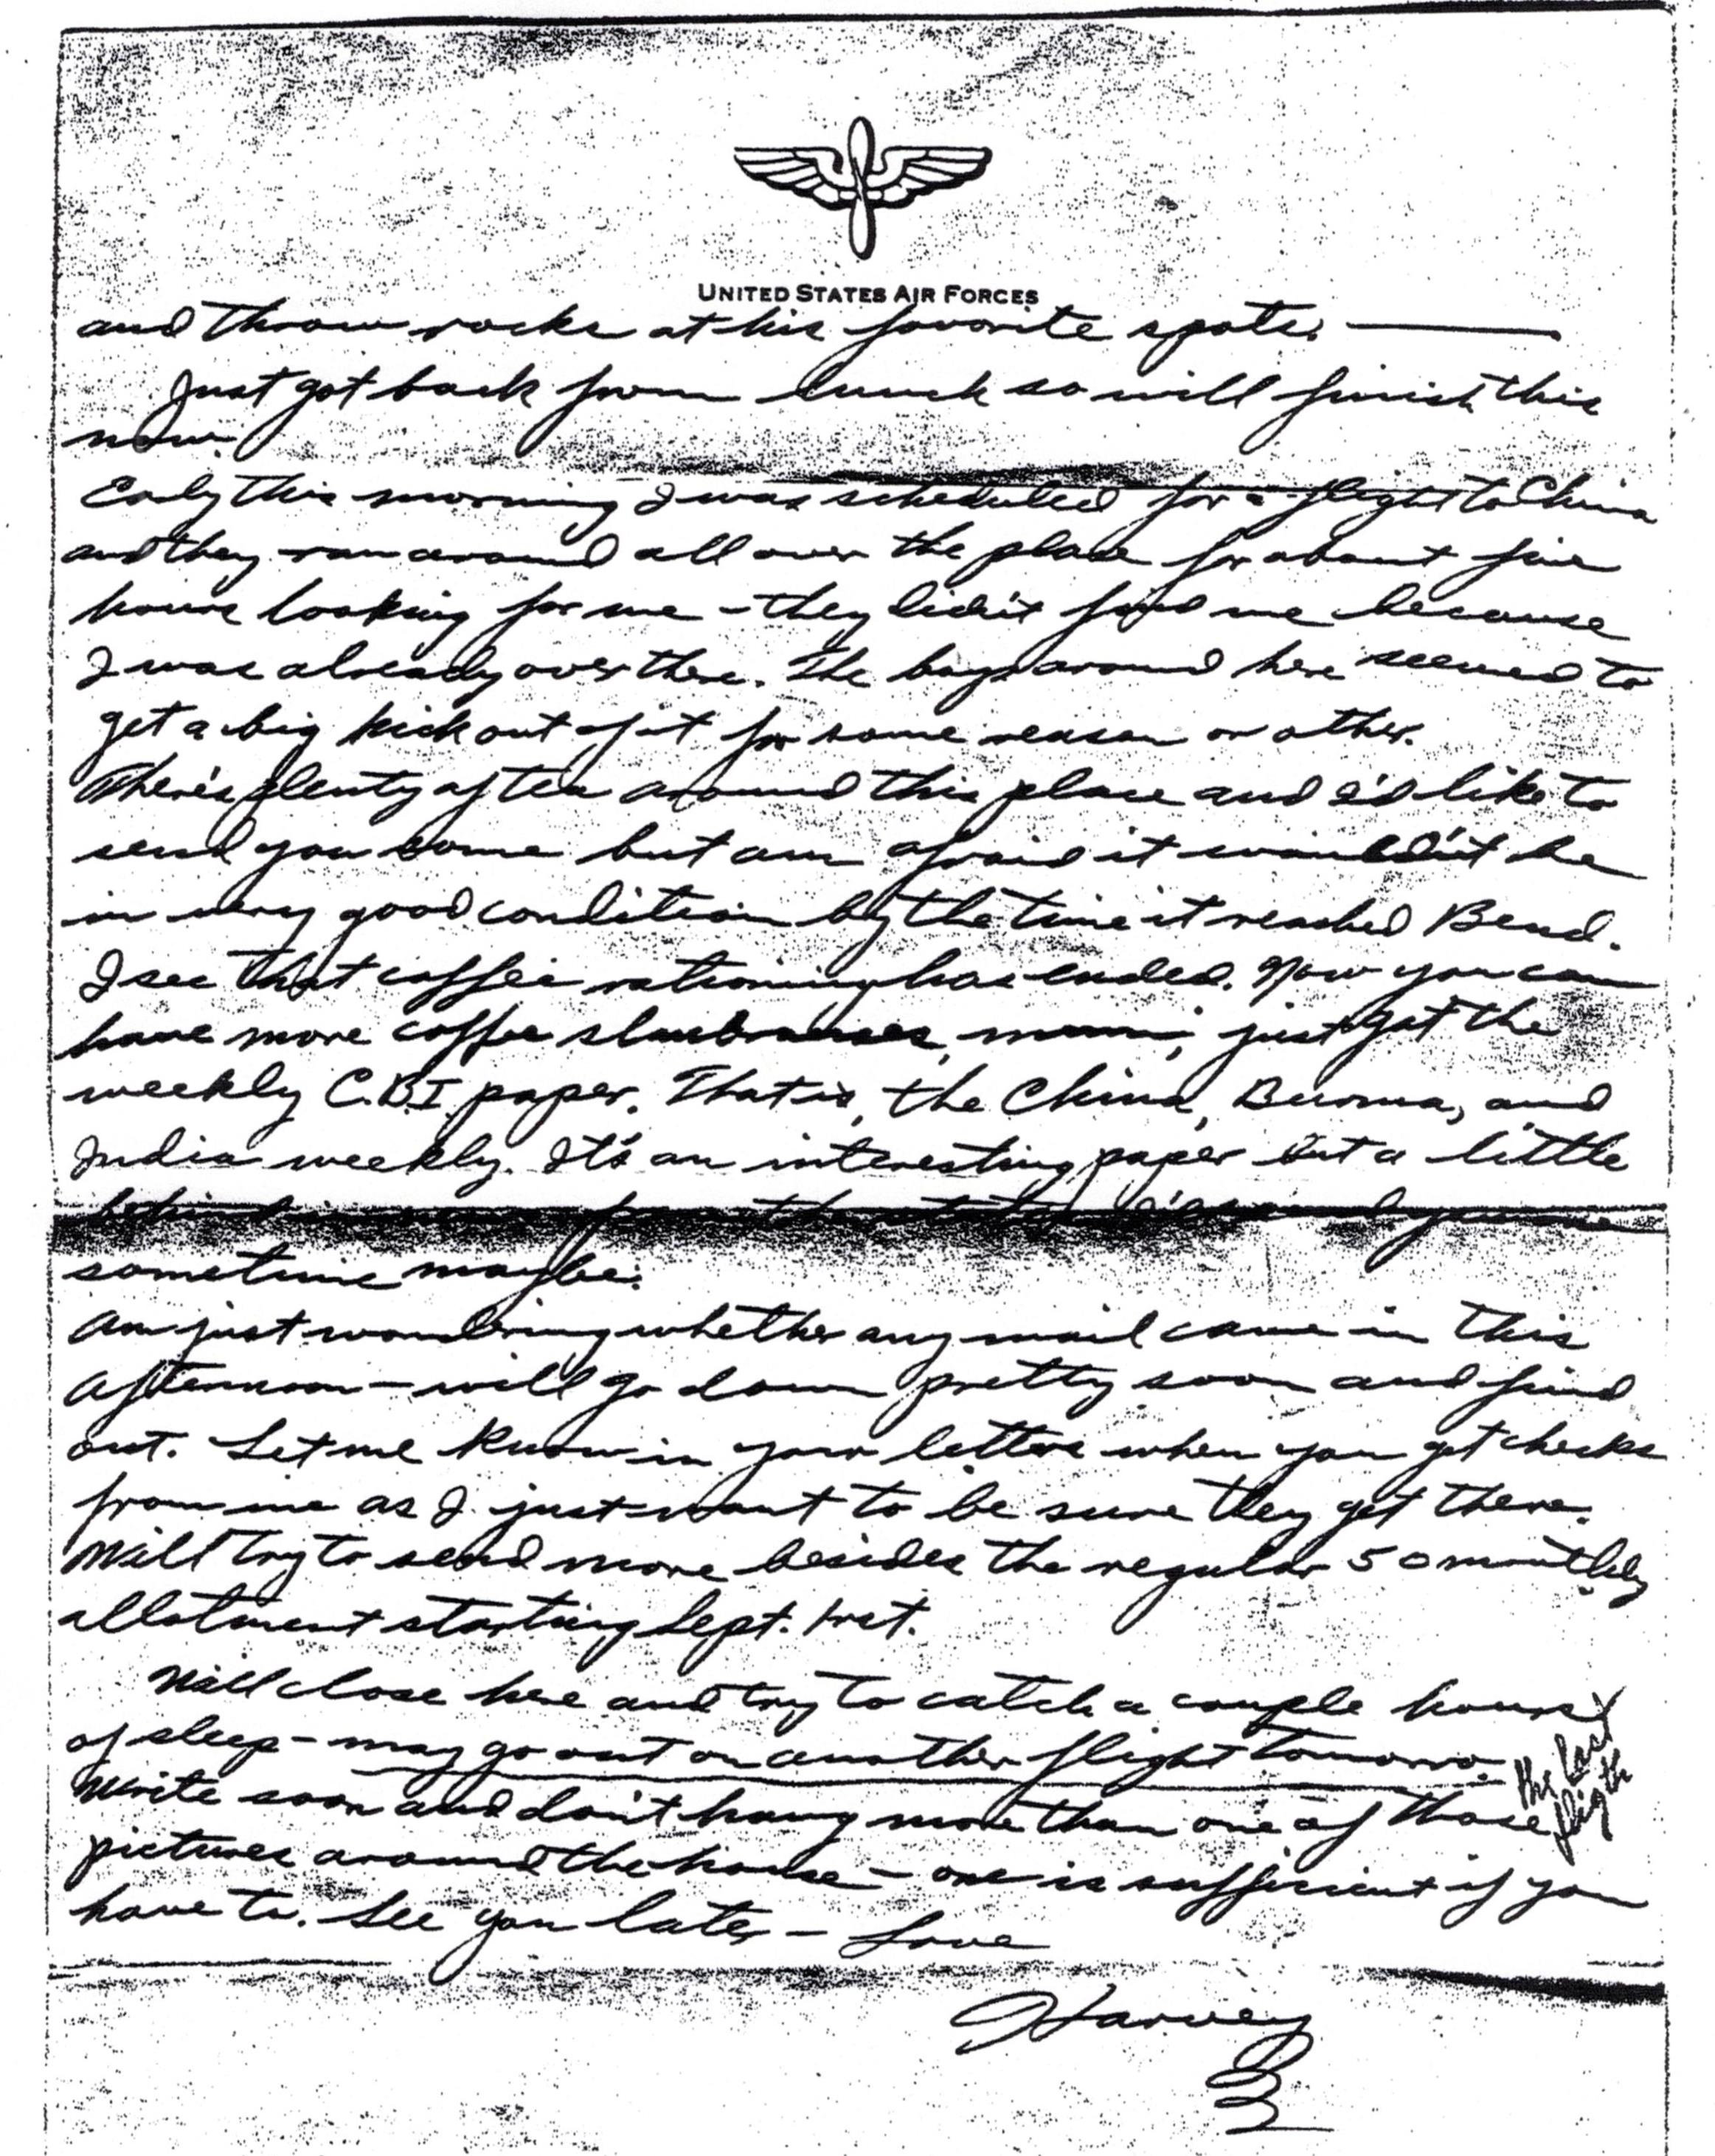 UNITED STATES AIR FORCES
and throw rocks at his favorite spots. —
Just got back from lunch so will finish this
now.
Early this morning I was scheduled for a flight to China
and they ran around all over the place for about five
hours looking for me - they didn't find me because
I was already over there. The boys around here seemed to
get a big kick out of it for some reason or other.
There's plenty of tea around this place and I'd like to
send you some but am afraid it wouldn't be
in very good condition by the time it reached Bend.
I see that coffee rationing has ended. Now you can
have more coffee mum, just got the
weekly C.B.I. paper. That is, the China, Burma, and
India weekly. It's an interesting paper but a little
behind in news from the states. I'll send you one
sometime maybe.
Am just wondering whether any mail came in this
afternoon - will go down pretty soon and find
out. Let me know in your letters when you get checks
from me as I just want to be sure they get there.
Will try to send more besides the regular 50 monthly
allotment starting Sept. 1rst.
Will close here and try to catch a couple hours
of sleep - may go out on another flight tomorro.
the last
fligth
Write soon and don't hang more than one of those
pictures around the house - one is sufficient if you
have to. See you later - Love
Harvey